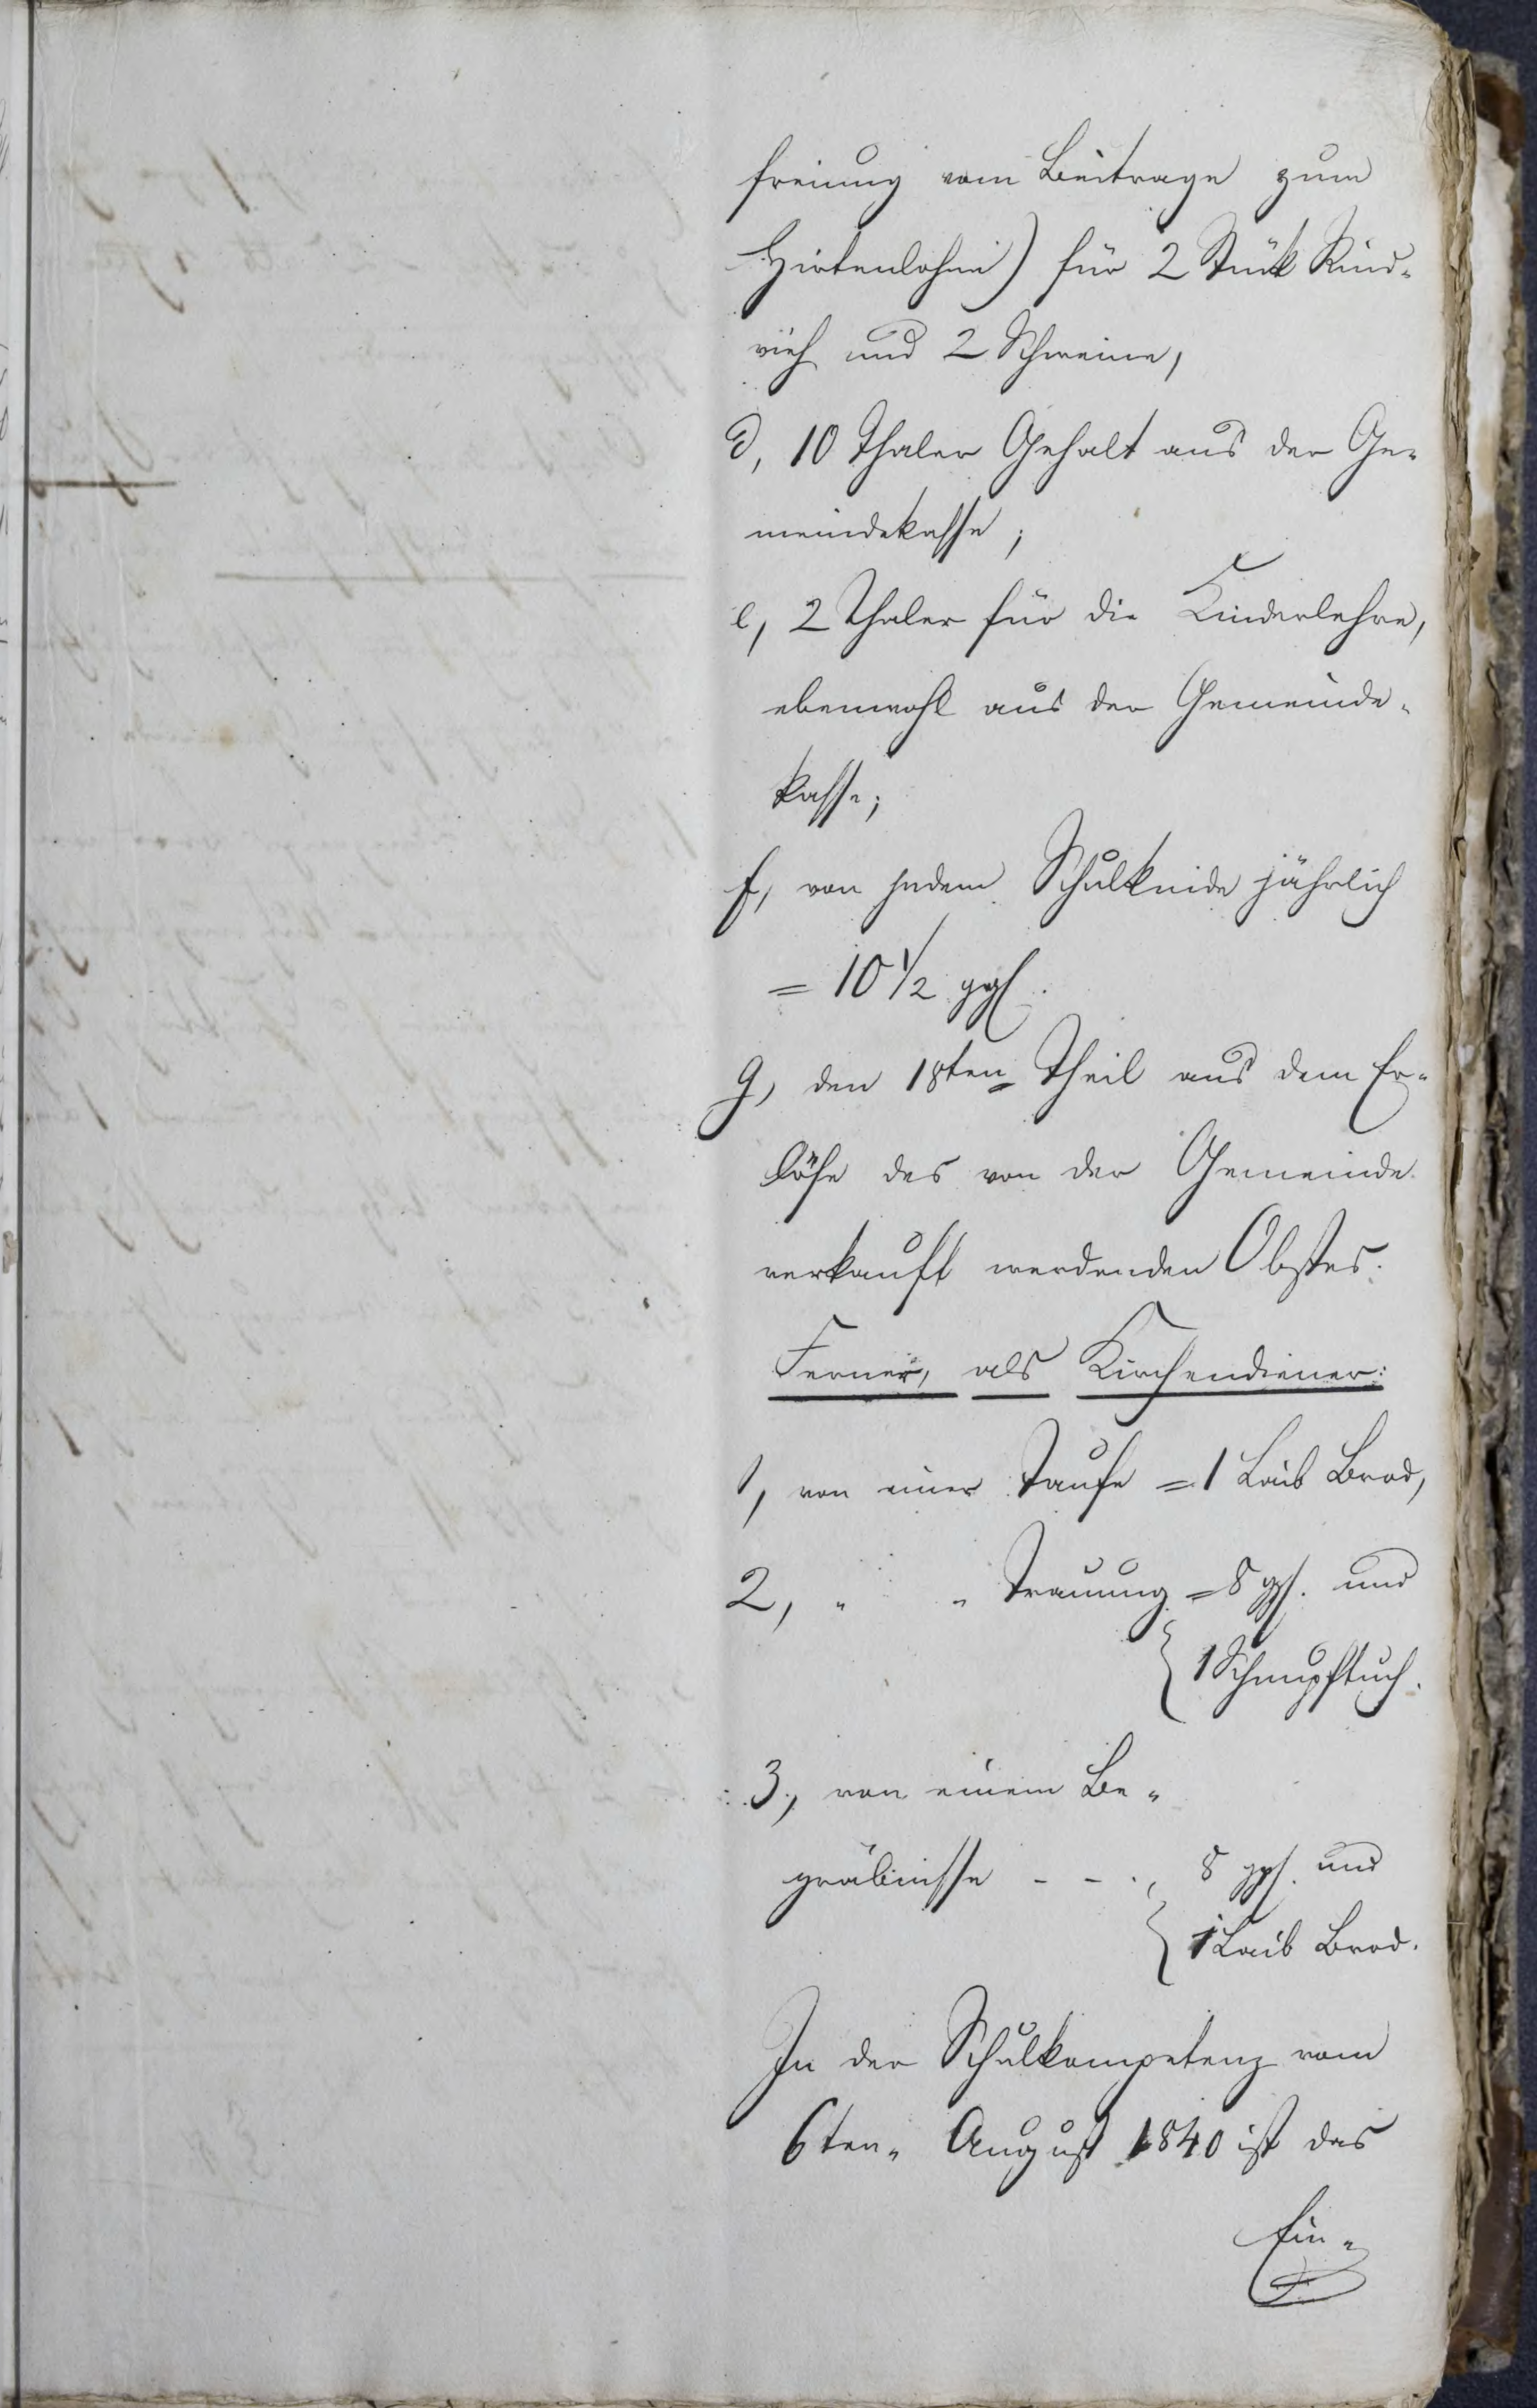 freiung vom Beitrage zum
Hirtenlohne) für 2 Stük Rind-
vieh und 2 Schweine,
d, 10 Thaler Gehalt aus der Ge-
meindekasse;
e, 2 Thaler für die Kinderlehre,
ebenwohl aus der Gemeinde-
kasse;
f, von jedem Schulkinde jährlich
= 10 1/2 ggl.
g, den 18ten Theil aus dem Er-
löse des von der Gemeinde
verkauft werdenden Obstes.
Ferner, als Kirchendiener:
1, von einer Taufe = 1 Laib Brod,
2, " " Trauung = 8 ggl. und
1 Schnupftuch.
3, von einem Be-
gräbnisse - - ., 8 ggl. und
1 Laib Brod.
In der Schulkompetenz vom
6ten August 1840 ist das
Ein-